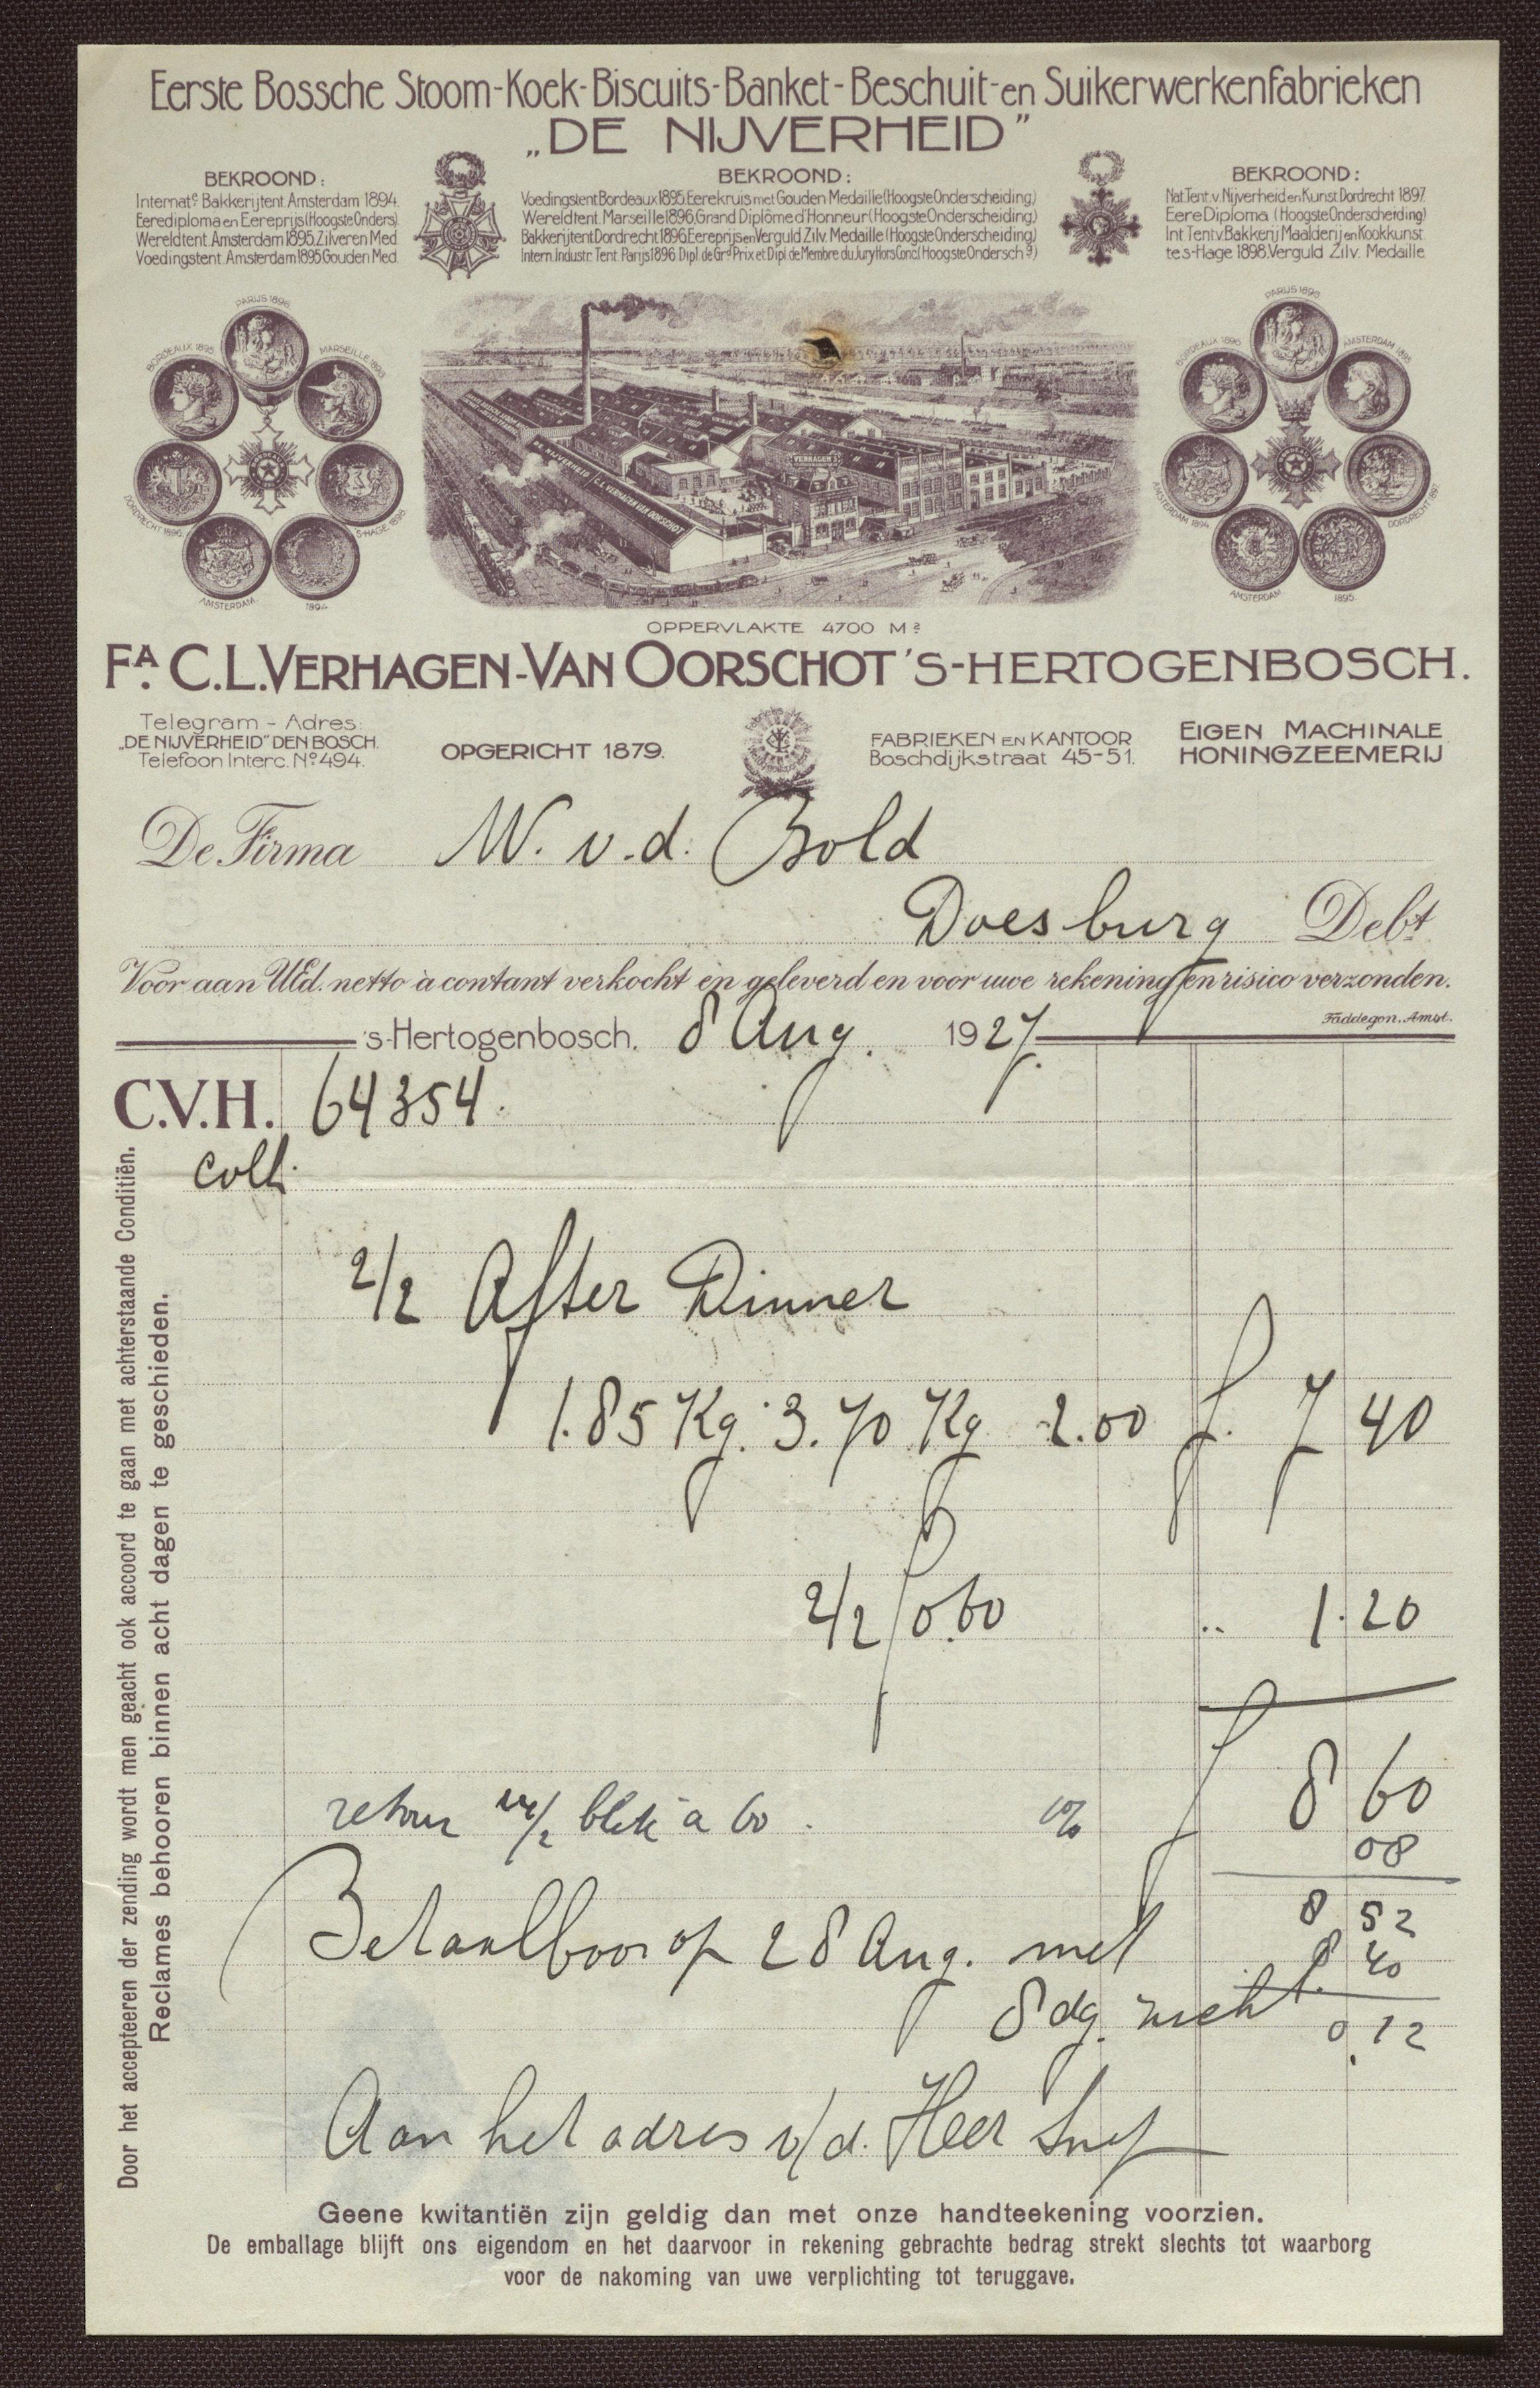 Eerste Bossche Stoom-Koek-Biscuits-Banket-Beschuit-en Suikerwerkenfabrieken
„DE NIJVERHEID”
BEKROOND:
Internatᵉ Bakkerijtent. Amsterdam 1894.
Eerediploma en Eereprijs (Hoogste Onders)
Wereldtent. Amsterdam 1895. Zilveren Med.
Voedingstent. Amsterdam 1895 Gouden Med.
BEKROOND:
Voedingstent Bordeaux 1895. Eerekruis met Gouden Medaille (Hoogste Onderscheiding)
Wereldtent. Marseille 1896. Grand Diplôme d'Honneur (Hoogste Onderscheiding)
Bakkerijtent Dordrecht 1896. Eereprijs en Verguld Zilv. Medaille (Hoogste Onderscheiding)
Intern. Industr. Tent. Parijs 1896 Dipl. de Grᵈ Prix et Dipl. de Membre du Jury Hors Conc. (Hoogste Ondersch.ᵍ)
BEKROOND:
Nat. Tent. v. Nijverheid en Kunst. Dordrecht 1897.
Eere Diploma (Hoogste Onderscheiding)
Int. Tent v Bakkerij Maalderij en Kookkunst
te s-Hage 1898. Verguld Zilv. Medaille
PARIJS 1896
BORDEAUX 1895
MARSEILLE 1896
DORDRECHT 1896
S-HAGE 1898
AMSTERDAM
1894
PARIJS 1896
BORDEAUX 1895
AMSTERDAM 1895
AMSTERDAM 1894
DORDRECHT 1897
AMSTERDAM
1895
VERHAGEN'S
DE NIJVERHEID C.L. VERHAGEN VAN OORSCHOT
OPPERVLAKTE 4700 M²
Fᴬ. C.L. VERHAGEN-VAN OORSCHOT 'S-HERTOGENBOSCH.
Telegram-Adres:
„DE NIJVERHEID” DEN BOSCH.
Telefoon Interc. Nº 494.
OPGERICHT 1879.
FABRIEKEN EN KANTOOR
Boschdijkstraat 45-51.
EIGEN MACHINALE
HONINGZEEMERIJ
De Firma W. v.d. Bold
Doesburg Debt
Voor aan UEd. netto à contant verkocht en geleverd en voor uwe rekening en risico verzonden.
Faddegon. Amst.
's-Hertogenbosch, 8 Aug. 1927.
C.V.H. 64354.
colli
2/2 After Dinner
1.85 Kg. 3.70 Kg 2.00 f. 7 40
2/2 f 0.60 .. 1.20
f 8 60
retour 2/2 blik à 60. 1%
08
8 52
Betaalbaar op 28 Aug. met
8 40
8 dg. zicht.
0.12
Aan het adres v/d. Heer
Door het accepteeren der zending wordt men geacht ook accoord te gaan met achterstaande Conditiën.
Reclames behooren binnen acht dagen te geschieden.
Geene kwitantiën zijn geldig dan met onze handteekening voorzien.
De emballage blijft ons eigendom en het daarvoor in rekening gebrachte bedrag strekt slechts tot waarborg
voor de nakoming van uwe verplichting tot teruggave.